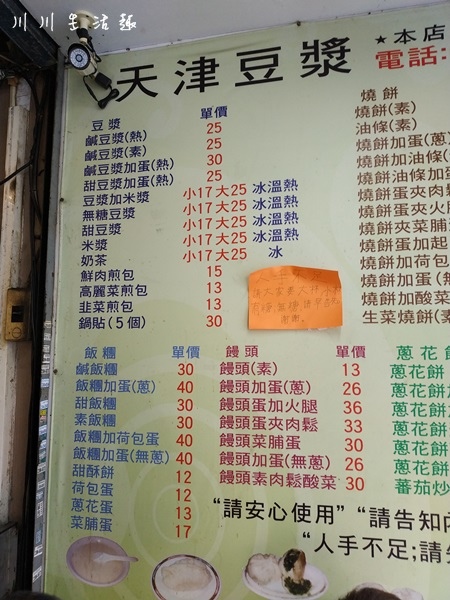 川川生活趣
天津豆漿
★本店
電話:
豆漿 單價
鹹豆漿(熱) 25
鹹豆漿(素) 25
鹹豆漿加蛋(熱) 30
甜豆漿加蛋(熱) 25
豆漿加米漿 小17大25 冰溫熱
無糖豆漿 小17大25 冰溫熱
甜豆漿 小17大25 冰溫熱
米漿 小17大25 冰溫熱
奶茶 小17大25 冰
鮮肉煎包 15
高麗菜煎包 13
韭菜煎包 13
鍋貼(5個) 30
燒餅
燒餅(素)
油條(素)
燒餅加蛋(蔥)
燒餅加油條(
燒餅油條加蛋
燒餅蛋夾肉鬆
燒餅蛋夾火腿
燒餅夾菜脯
燒餅蛋加起
燒餅加荷包
燒餅加蛋(無
燒餅加酸菜
生菜燒餅(素
謝謝。
飯糰 單價
鹹飯糰 30
飯糰加蛋(蔥) 40
甜飯糰 30
素飯糰 30
飯糰加荷包蛋 40
飯糰加蛋(無蔥) 40
甜酥餅 12
荷包蛋 12
蔥花蛋 13
菜脯蛋 17
饅頭 單價
饅頭(素) 13
饅頭加蛋(蔥) 26
饅頭蛋加火腿 36
饅頭蛋夾肉鬆 33
饅頭菜脯蛋 30
饅頭加蛋(無蔥) 26
饅頭素肉鬆酸菜 30
蔥花餅
蔥花餅
蔥花餅加
蔥花餅
蔥花餅
蔥花餅加
蔥花餅
番茄炒
"請安心使用" "請告知內
"人手不足;請先